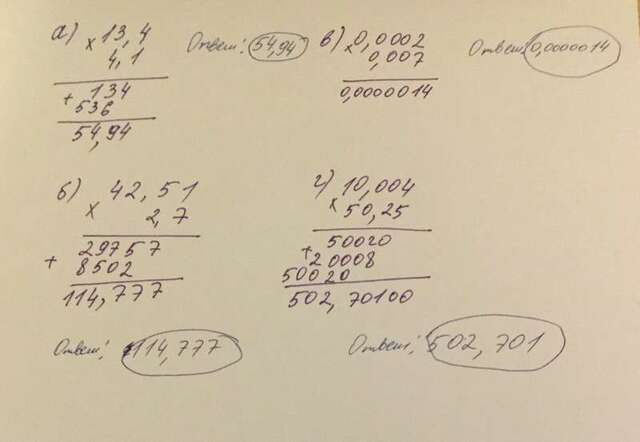 а) × 13,4
4,1
+ 134
536
54,94
Ответ: 54,94
в) × 0,0002
0,007
0,0000014
Ответ: 0,0000014
б) × 42,51
2,7
+ 29757
8502
114,777
Ответ: 114,777
г) × 10,004
50,25
+ 50020
20008
50020
502,70100
Ответ: 502,701